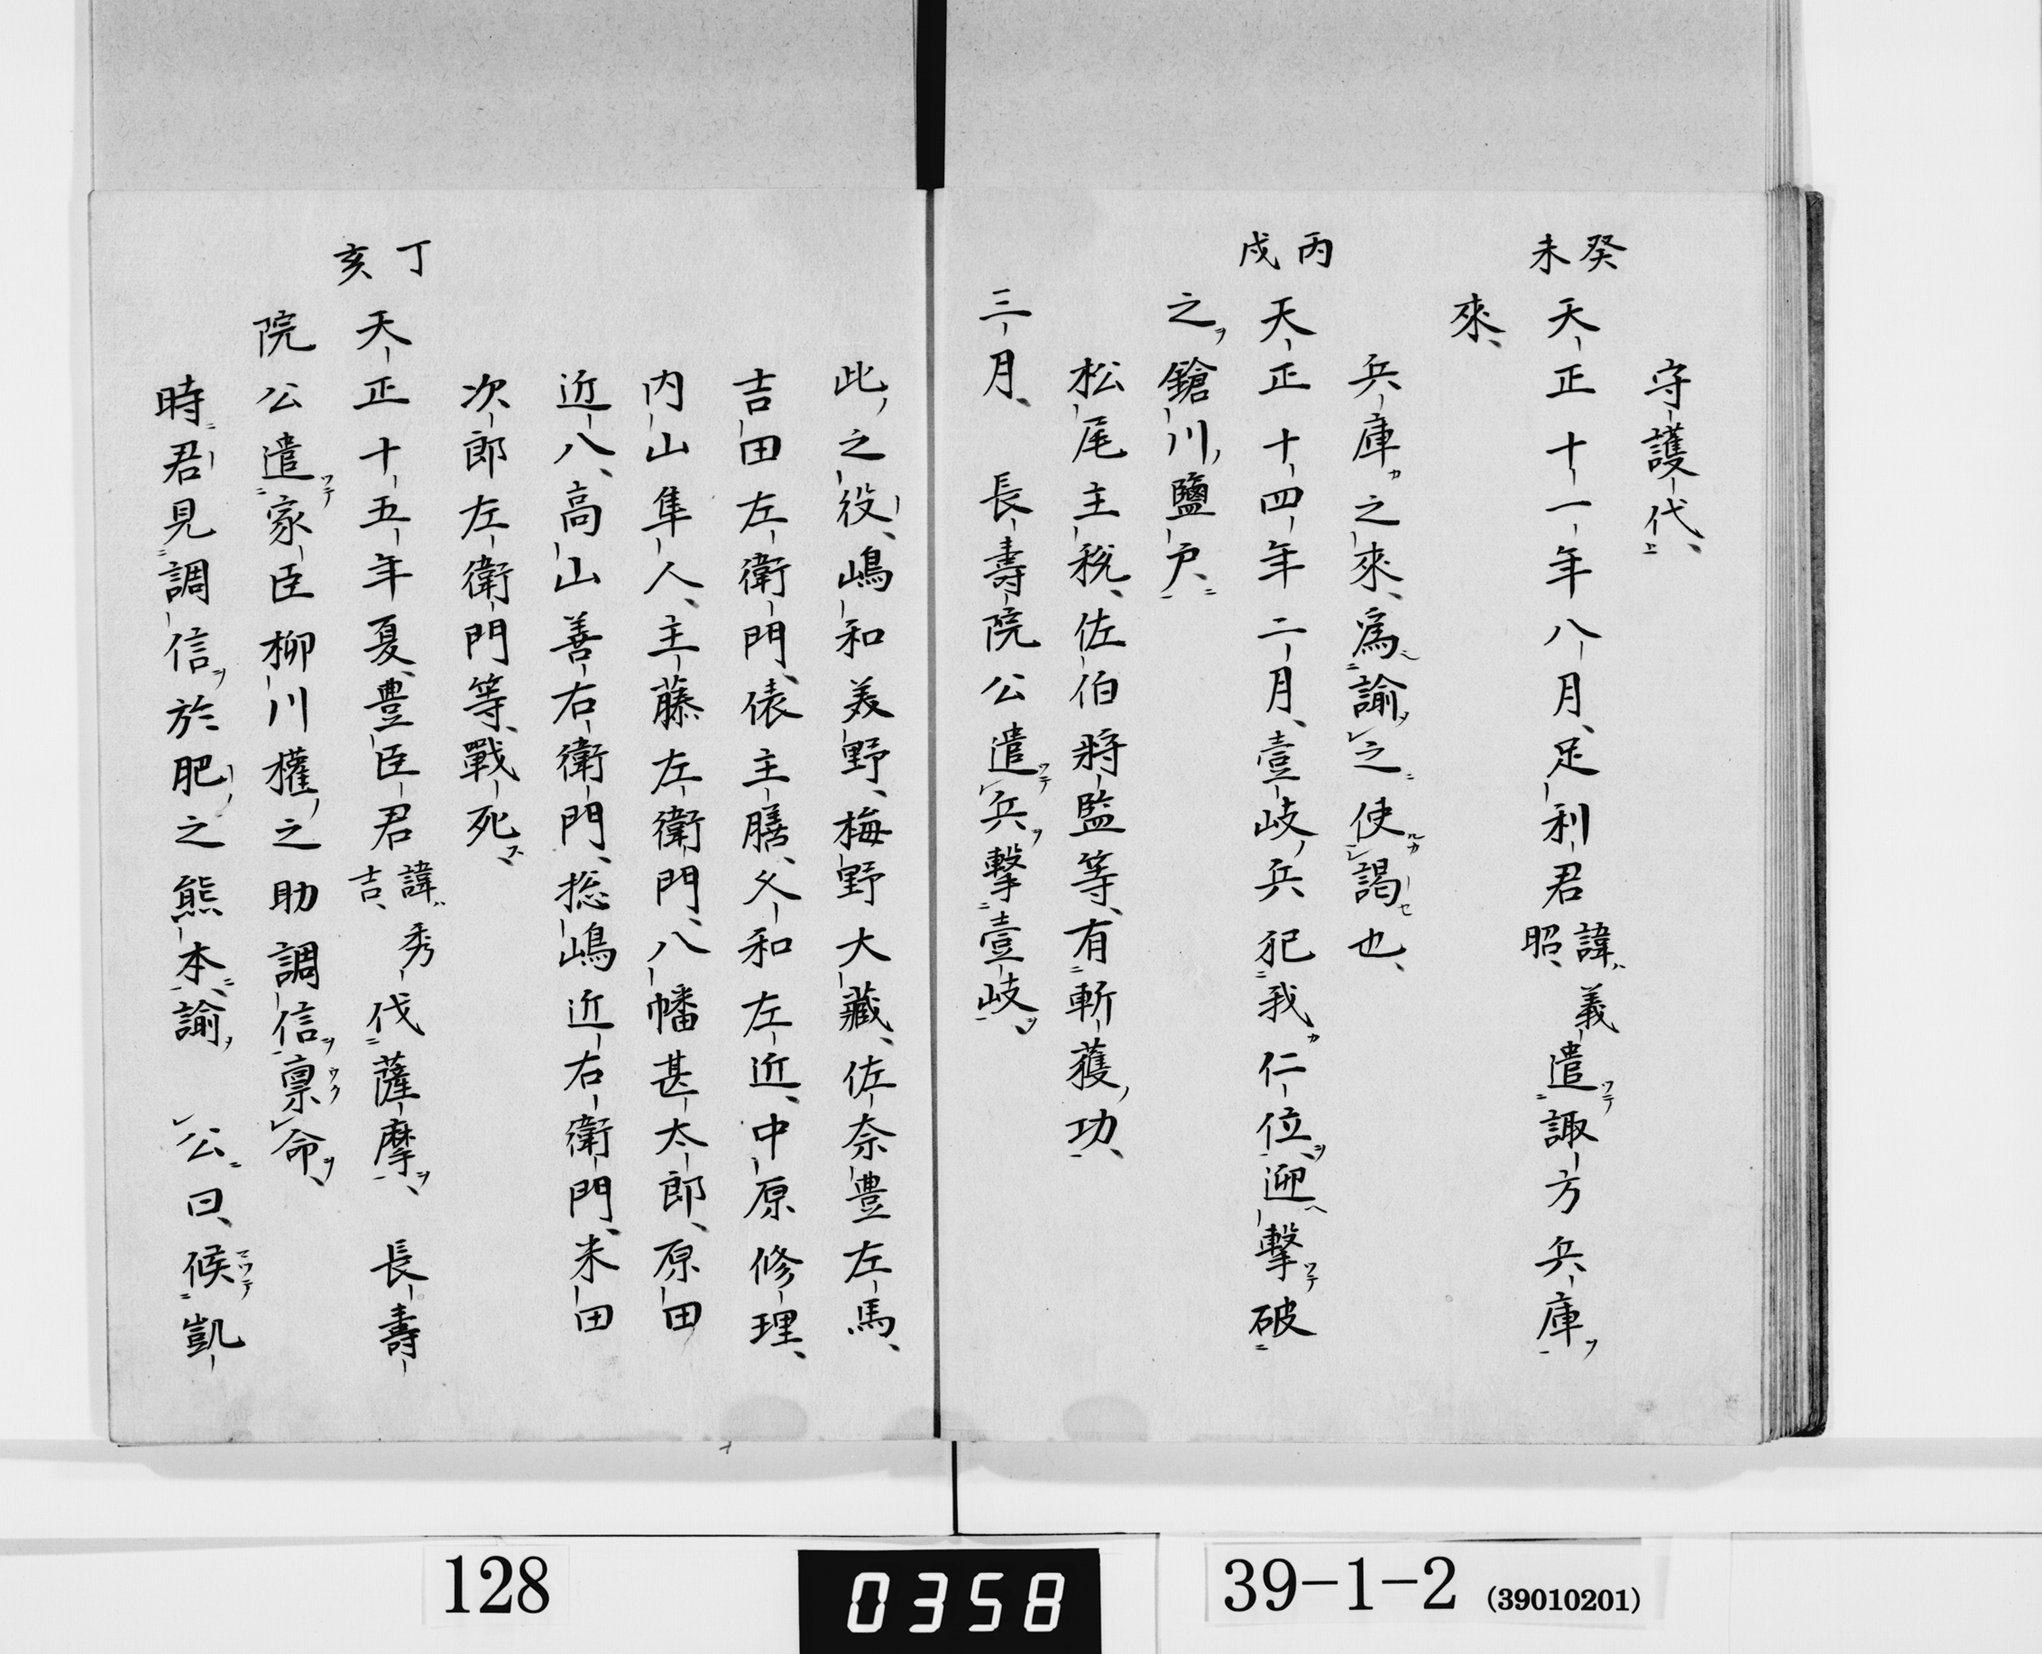 守護代、
癸未
天正十一年八月、足利君諱義昭、遣諏方兵庫
來、
兵庫之來、爲諭之使謁也、
丙戌
天正十四年二月、壹岐兵犯我仁位、迎撃破
之、鎗川、鹽戸、
松尾主税、佐伯將監等、有斬獲功、
三月、 長壽院公遣兵撃壹岐、
此之役、嶋和美野、梅野大藏、佐奈豊左馬、
吉田左衛門、俵主膳、久和左近、中原修理、
内山隼人、主藤左衛門、八幡甚太郎、原田
近八、高山善右衛門、捴嶋近右衛門、米田
次郎左衛門等、戰死、
丁亥
天正十五年夏、豊臣君諱秀吉、伐薩摩、 長壽
院公遣家臣柳川權之助調信禀命、
時君見調信於肥之熊本、諭 公曰、候凱
128
0358
39-1-2 (39010201)